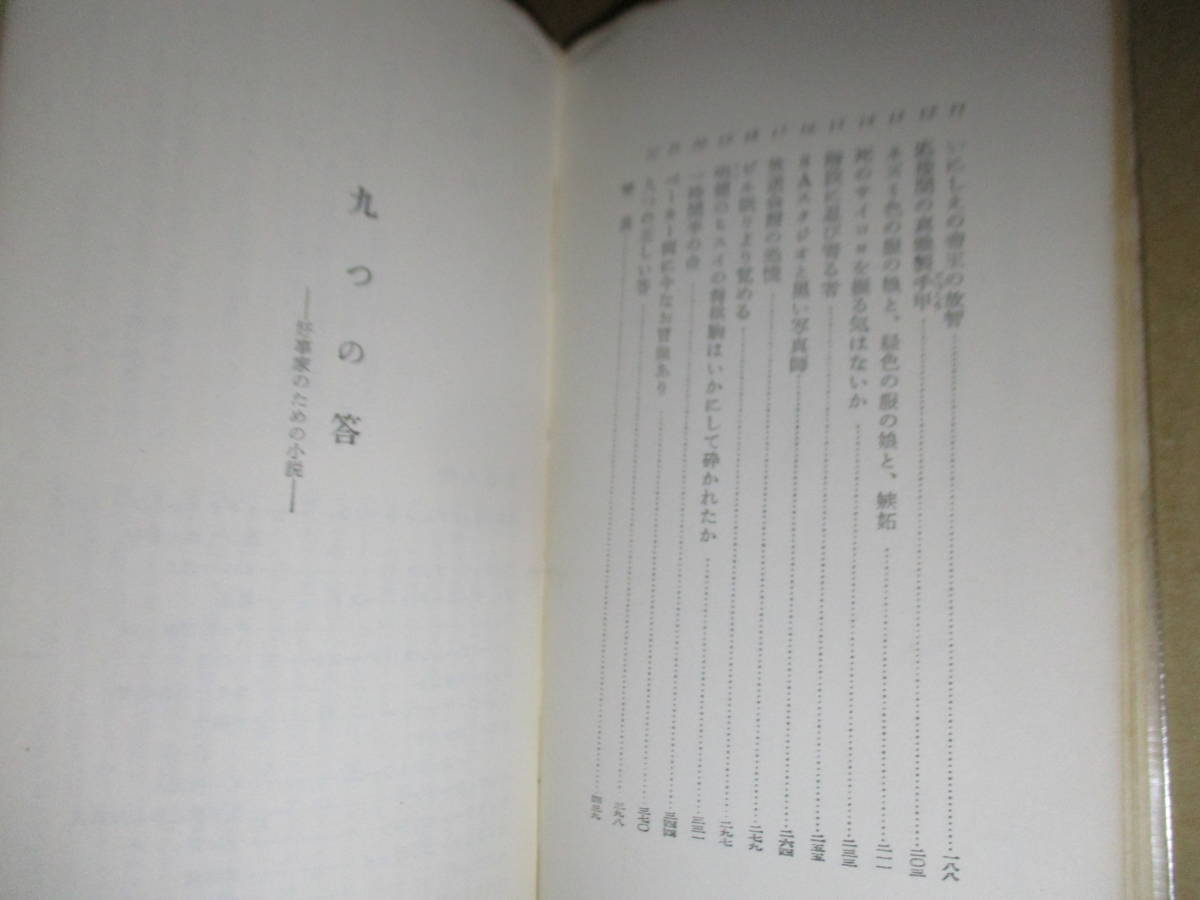 11 いにしえの帝王の故智……一八八
12 応接間の真鍮製手甲……二〇三
13 ネズミ色の服の娘と、緑色の服の娘と、嫉妬……二一一
14 死のサイコロを振る気はないか……二三三
15 階段に忍び寄る者……二五五
16 8Aスタジオと黒い写真師……二六四
17 放送台本の恐怖……二七九
18 ビル眠りより覚める……二九七
19 のヒスイの将棋駒はいかにして砕かれたか……三三一
20 一時間半の命……三四四
21 ベーカー街に今なお冒険あり……三七〇
22 九つの正しい答……三九八
解説……四三九
九つの答
――好事家のための小説――